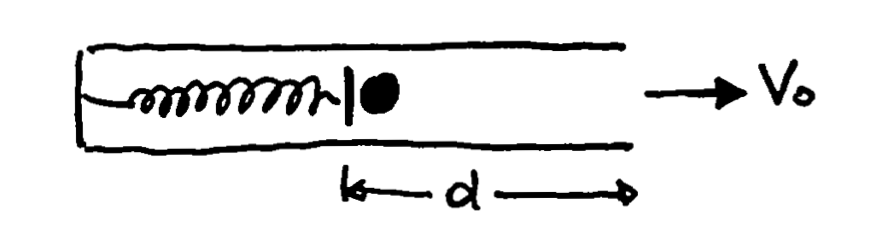 V₀
d